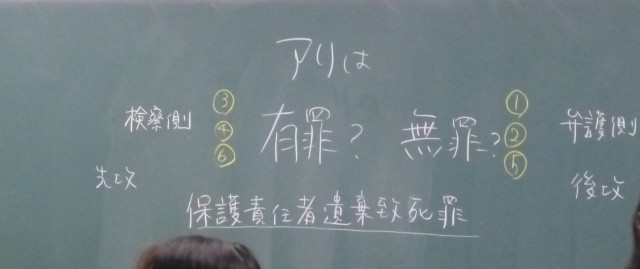 アリは
検察側 ③ 有罪? 無罪? ① 弁護側
④ ②
先攻 ⑥ ⑤ 後攻
保護責任者遺棄致死罪